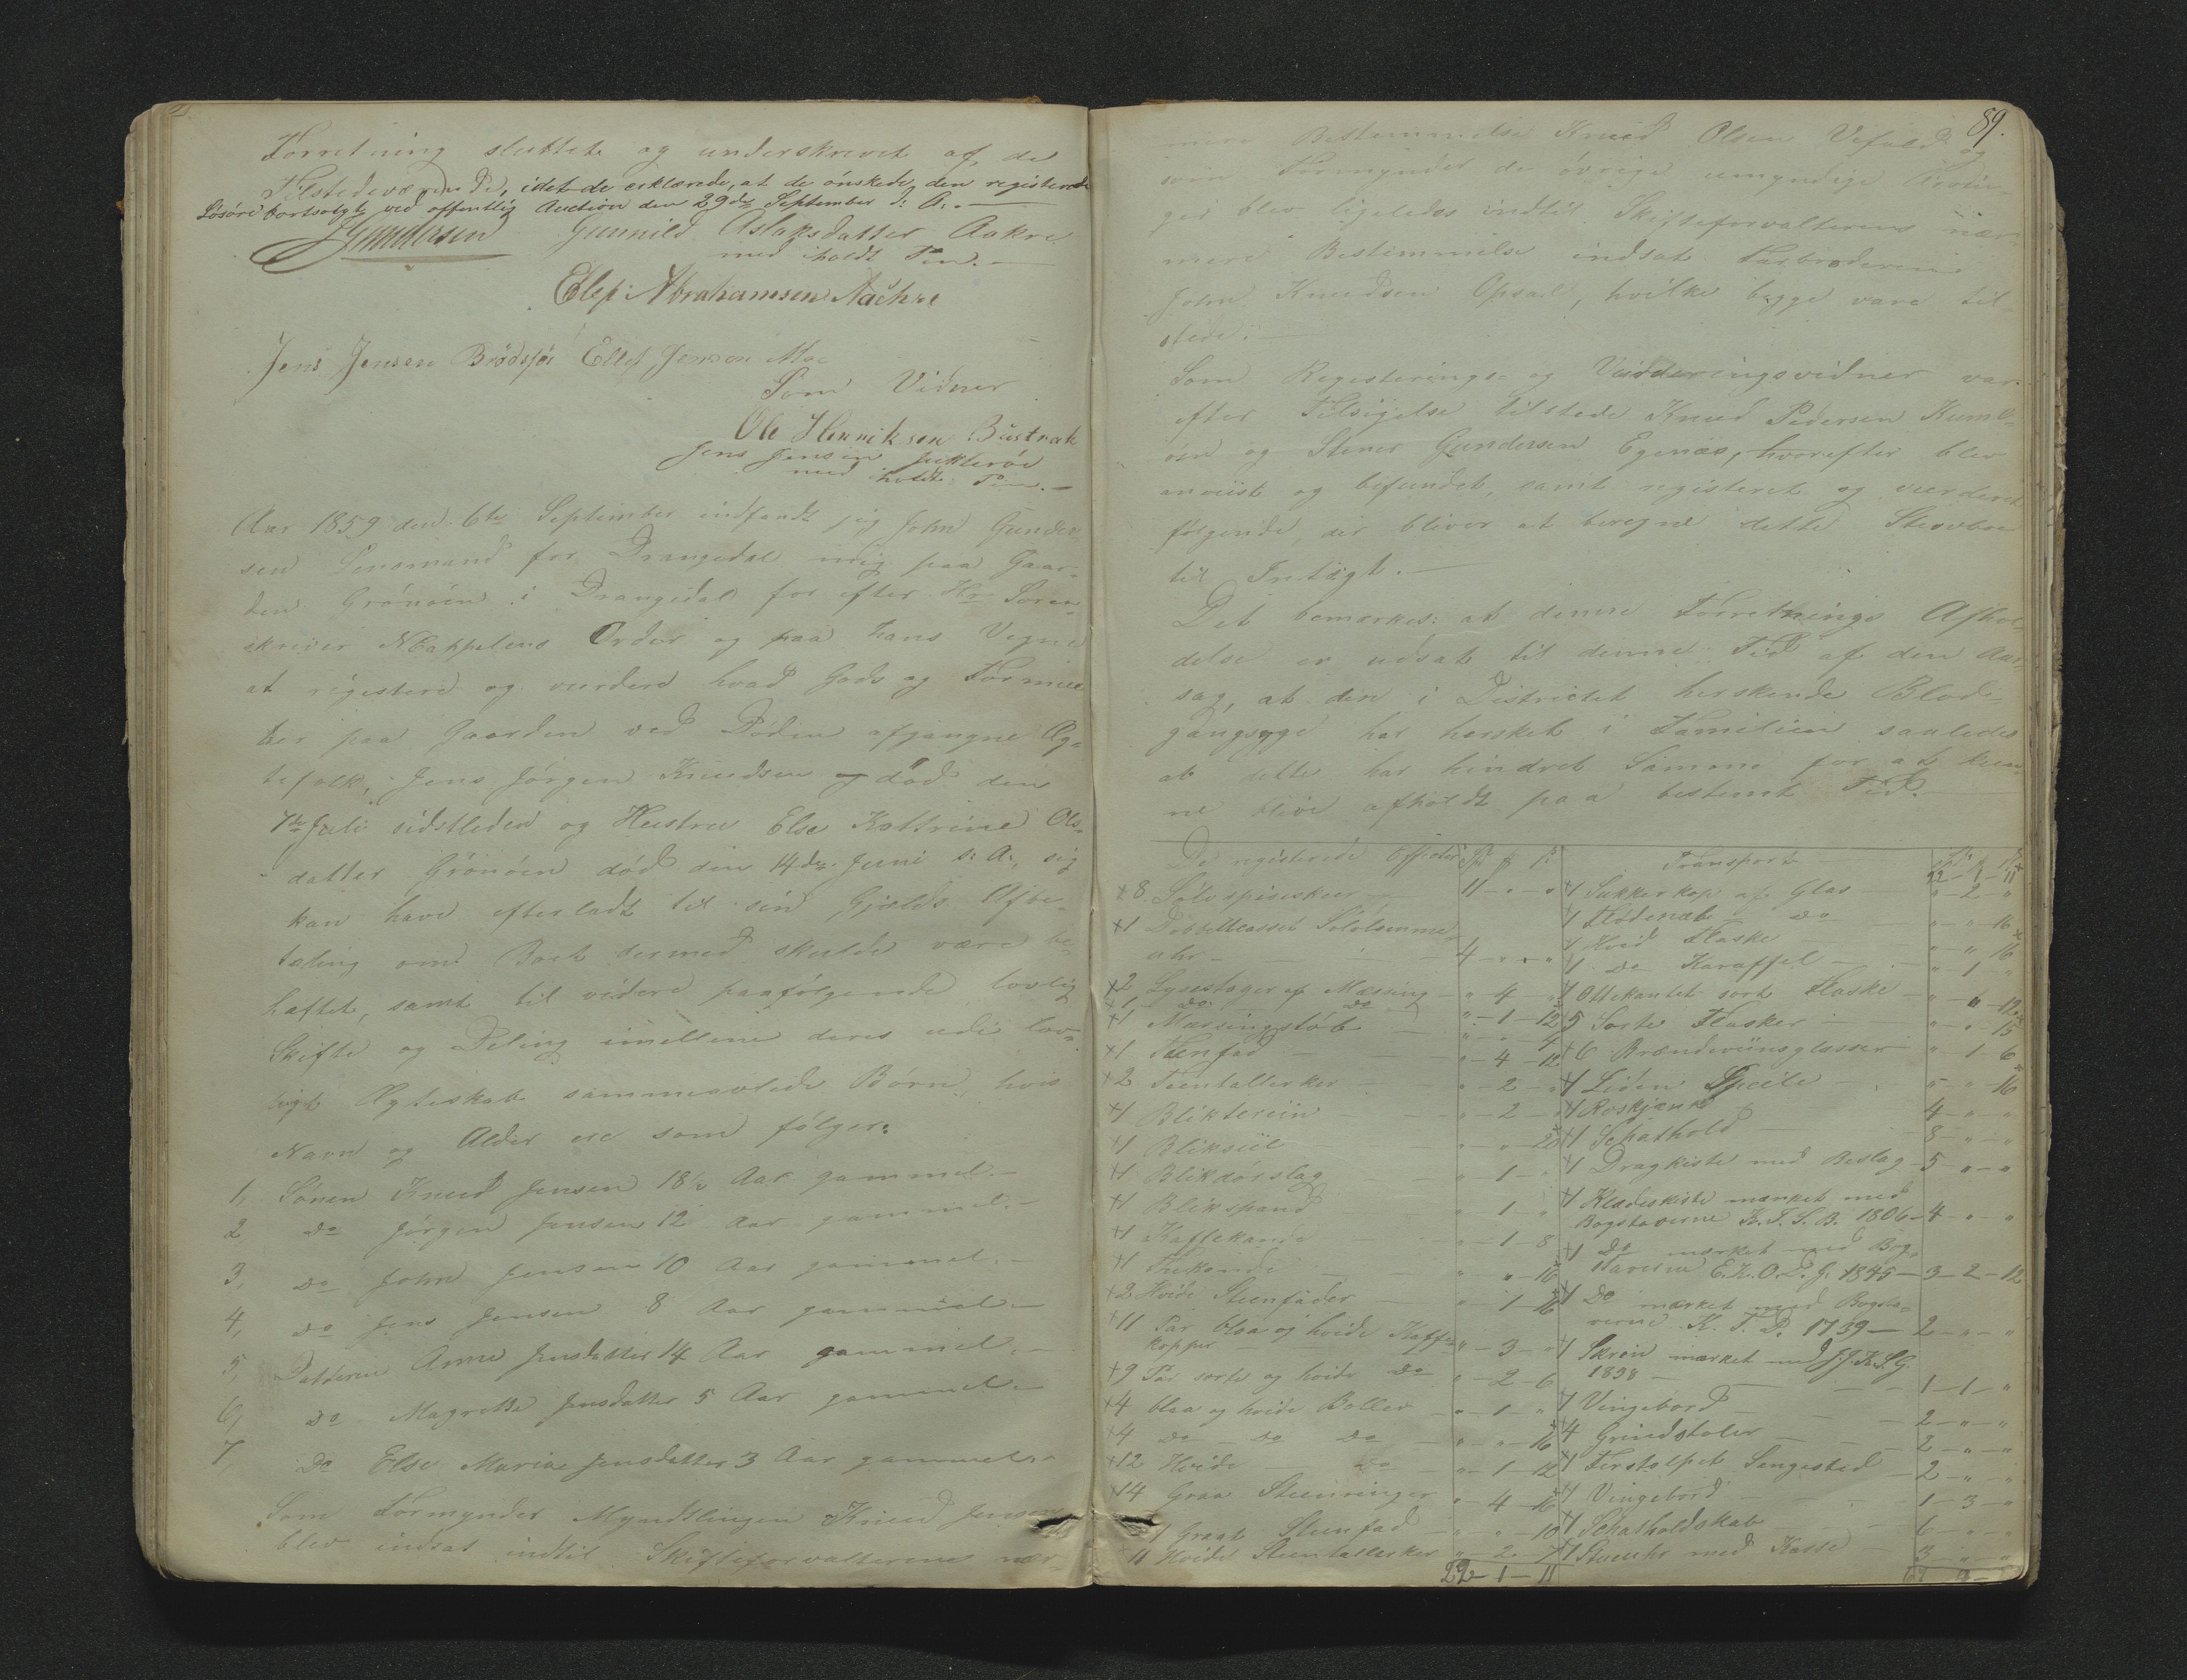 Forretning sluttet og underskrevet af de
Tilstedeværende, idet de erklærede, at de ønskede den registerede
Løsøre bortsolgt ved offentlig Auction den 29de September d: A:. —
JGundersen Gunnild Aslaksdatter Aakre
med iholdt Pen. —
Ellef Abrahamsen Aachre
Jens Jensen Brødsjø Ellef Jensen Moe
Som Vidner
Ole Henriksen Bustrak
Jens Jensen
med iholdt Pen. —
Aar 1859 den 6te September indfandt jeg John Gunder-
sen Lensmand for Drangedal mig paa Gaar-
den Grønøen i Drangedal for efter Hr Soren-
skriver NCappelens Order og paa hans Vegne
at registere og vurdere hvad Gods og Formue
her paa Gaarden ved Døden afgangne Æg-
tefolk, Jens Jørgen Knudsen død den
7de Juli sidstleden og Hustru Else Kattrine Ols-
datter Grønøen død den 14de Juni d: A:, sig
kan have efterladt til sin Gjælds Afbe-
taling om Boet dermed skulde være be-
hæftet, samt til videre paafølgende lovlig
Skifte og Deling imellem deres udi lov-
ligt Ægteskab sammenavlede Børn, hvis
Navn og Alder ere som følger:
1, Sønen Knud Jensen 18½ Aar gammel. —
2 Do Jørgen Jensen 12 Aar gammel. —
3, Do John Jensen 10 Aar gammel. —
4, Do Jens Jensen 8 Aar gammel. —
5, Datteren Anne Jensdatter 14 Aar gammel. —
6, Do Magrethe Jensdatter 5 Aar gammel. —
7, Do Else Maria Jensdatter 3 Aar gammel. —
Som Formynder Myndlingen Knud Jensen
blev indsat indtil Skifteforvalterens nær-
89.
mere Bestemmelse Knud Olsen Vefald og
som Formynder de øvrige umyndige Arvin-
ger blev ligeledes indtil Skifteforvalterens nær-
mere Bestemmelse indsat Farbroderen
John Knudsen Opsal, hvilke begge vare til-
stede. —
Som Registerings- og Vurderingsvidner var
efter Tilsigelse tilstede Knud Pedersen Kuml-
øen og Stener Gundersen Egenæs, hvorefter blev
anviist og befundet, samt registeret og vurderet
følgende, der bliver at beregne dette Stervboe
til Indtægt. —
Det bemærkes: at denne Forretnings Afhol-
delse er udsat til denne Tid af den Aar-
sag, at den i Districtet herskende Blod-
gangsyge har hersket i Familien saaledes
at dette har hindret Samme for at kun-
ne blive afholdt paa bestemt Tid. —
De registerede Effecter Spd ß
+8 Sølvspiseskeer 11 - " - "
+1 Dobbelkasset Sølvlomme-
uhr - 4 - " - "
+2 Lysestager af Messing " - 4 - "
+1 Do Do " - 1 - 12
+1 Messingstøb " - " - 4
+1 Teenfad " - 4 - 12
+2 Teentallerker " - 2 - "
+1 Blikteriin " - 2 - "
+1 Bliksiil " - " - 20
+1 Blikdørslag " - 1 - "
+1 Blikspand " - 1 - "
+1 Kaffekande " - 1 - 8
+1 Thekande " - " - 16
+2 Hvide Steenfader " - 1 - 16
+11 Par blaa og hvide Kaffe-
kopper " - 3 - "
+9 Par sorte og hvide Do " - 2 - 6
+4 blaa og hvide Boller " - 1 - "
+4 Do Do Do " - " - 16
+12 Hvide Do " - 1 - 12
+14 Graa Steenringer " - 4 - 16
+1 Graat Steenfad " - " - 10
+11 Hvide Steentallerker " - 2 - 7
22 - 1 - 11
Transport 22 - 1 - 11
+1 Sukkerkop af Glas " - 2 "
+1 Fløtenæb " Do " - " - 16
+1 Hvid Flaske " - " 16
+1 Do Karaffel " - 1 "
+1 Ottekantet sort Flaske " - " - 12
+5 Sorte Flasker " - " - 15
+6 Brændeviinsglasser " - 1 - 6
+1 Liden Speile " " 16
+1 Roskjænk 4 - " - "
+1 Schathold 8 - " - "
+1 Dragkiste med Beslag 5 - " - "
+1 Klædeskiste mærket med
Bogstaverne K. T. S. B. 1806 - 4 - " - "
+1 Do mærket med Bog-
staverne E. K. O. D. G. 1845 - 3 - 2 - 12
+1 Do mærket med Bogsta-
verne K. T. D. 1739 - 2 - " - "
+1 Skriin mærket med J. J. K. S. G.
1838 - 1 - 1 - "
+1 Vingebord 2 - " - "
+4 Grindstoler 2 - " - "
+1 Firstolpet Sengested 2 - " - "
+1 Vingebord 1 - 3 - "
+1 Schatholdskab 6 - " - "
+1 Stueuhr med Kasse 3 - " - "